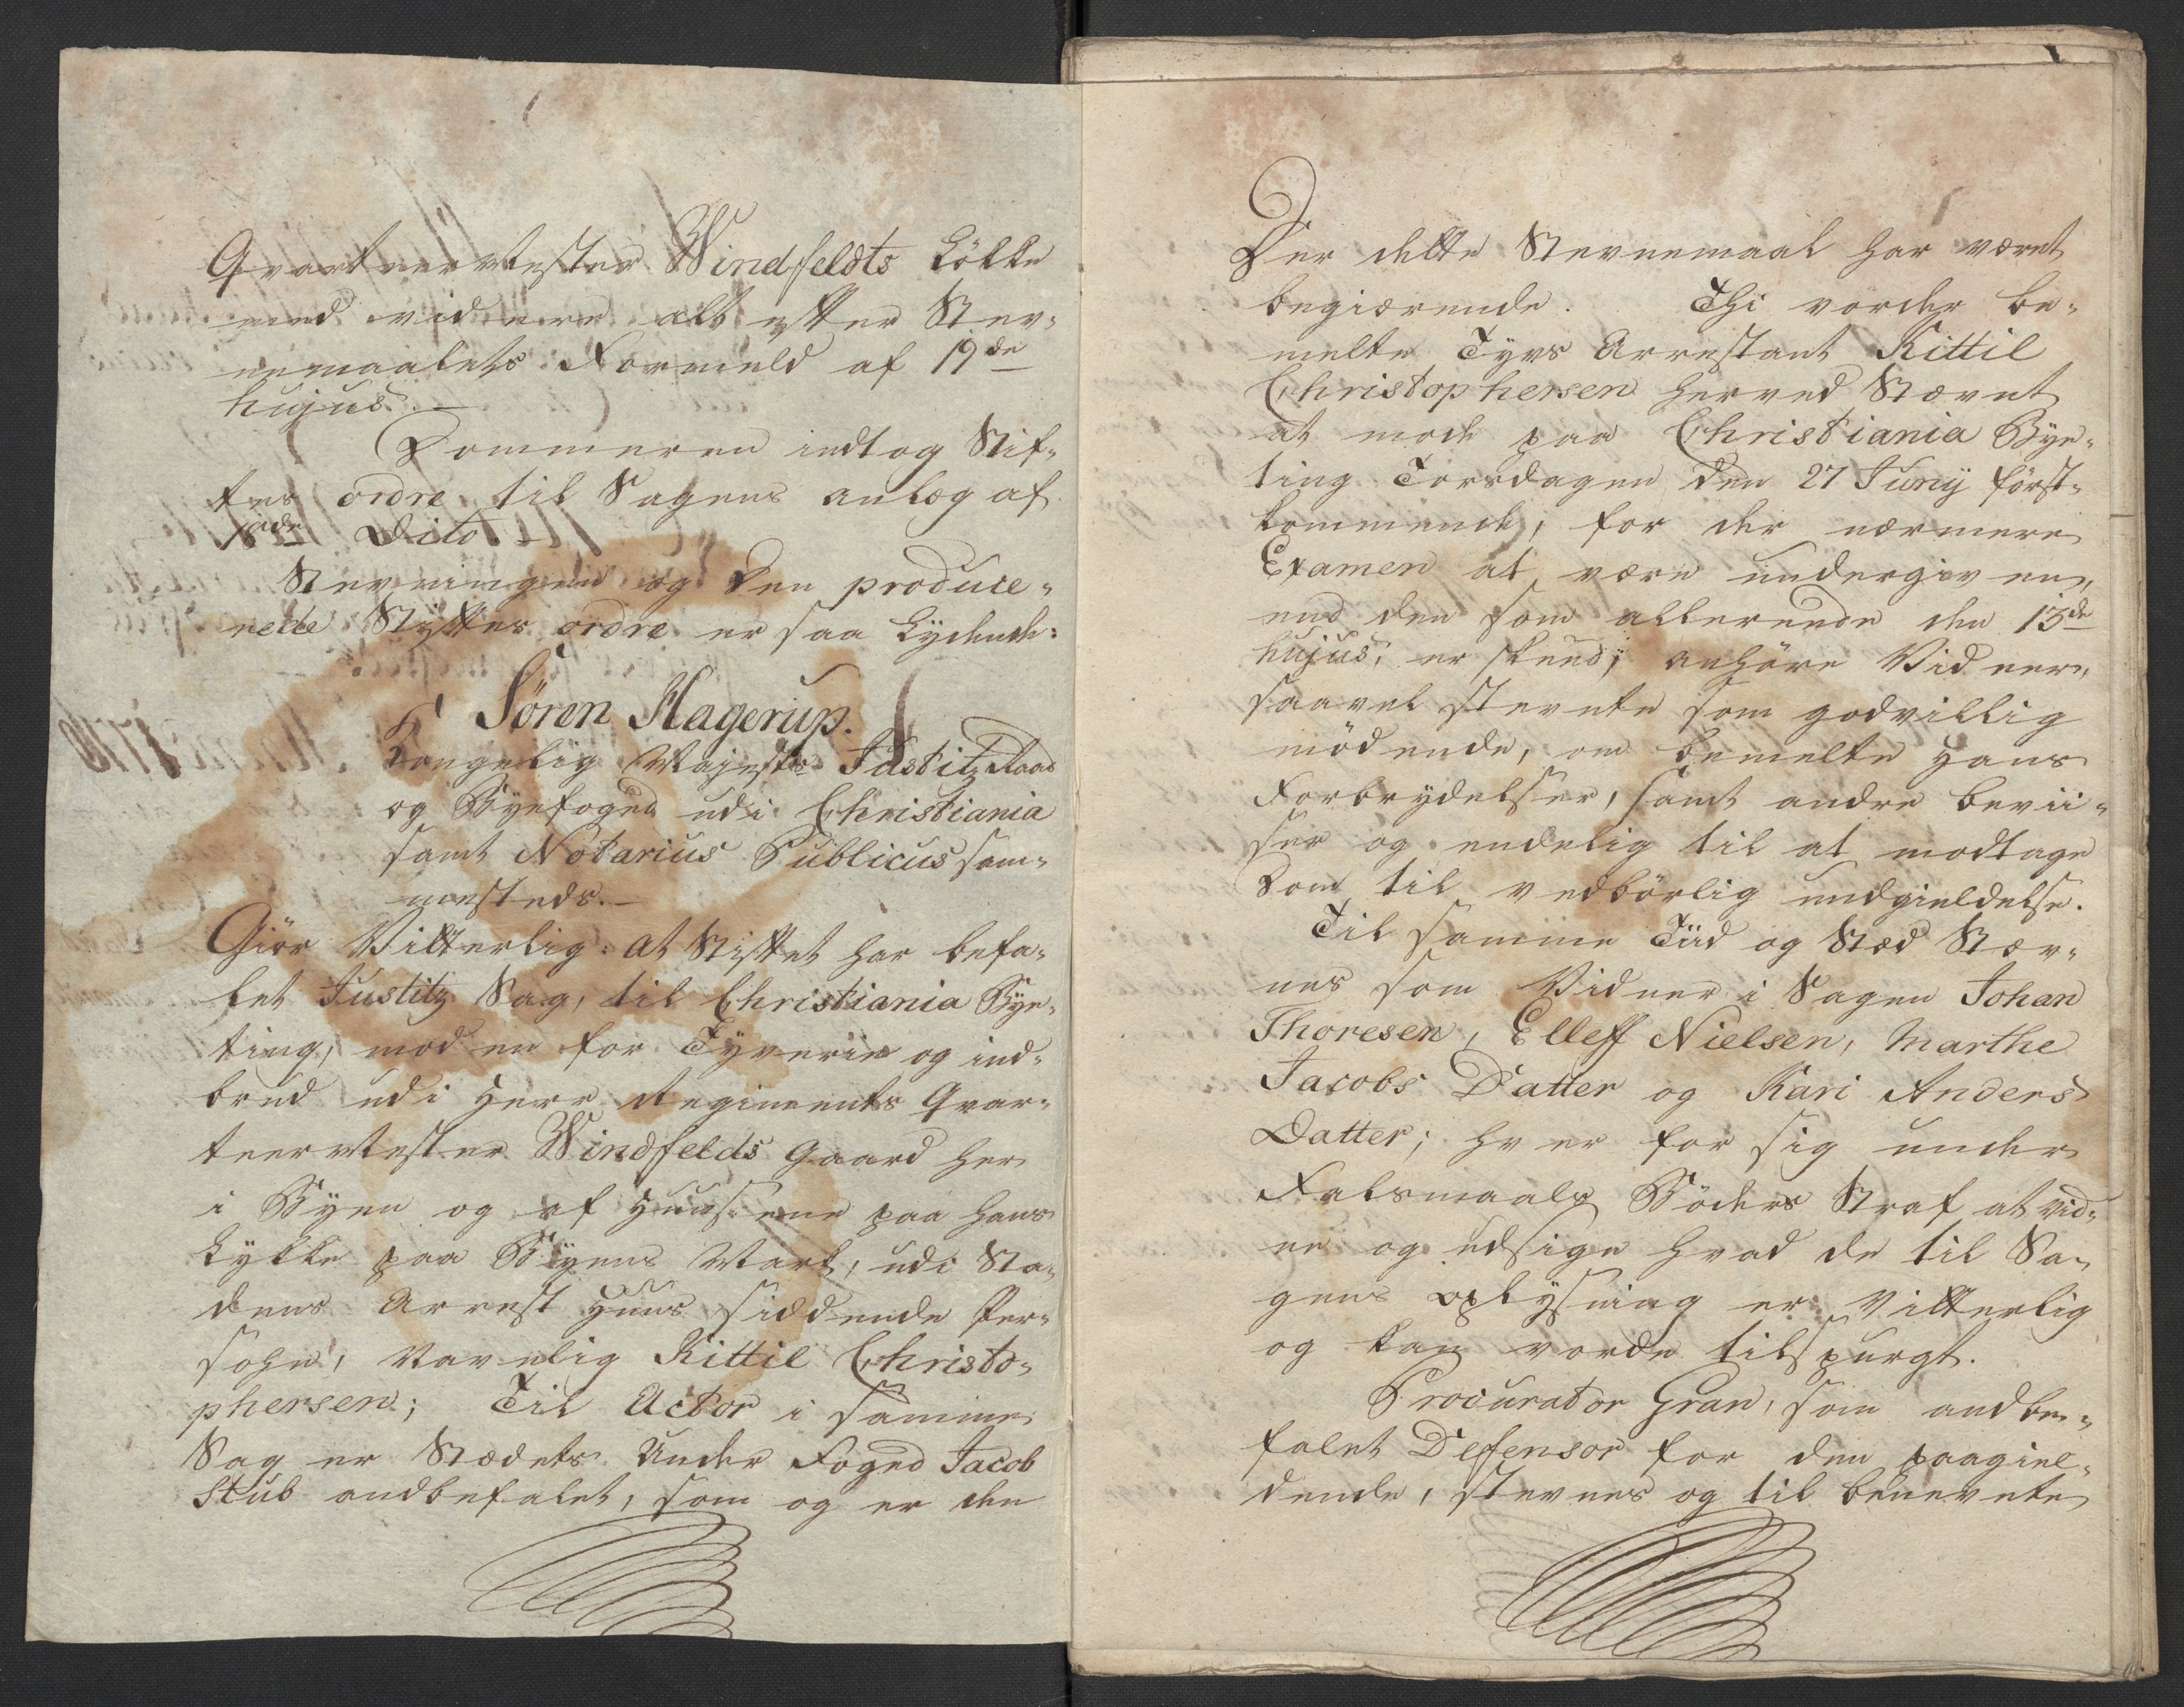 Qvarteermester Windfeldts Lökke
med videre alt efter Stev-
nemaalets Formeld af 19de
hujus. —
Dommeren indtog Stif-
tes ordre til Sagens anlæg af
18de Dito —
Stevningen og den produce-
rede Stiftes ordre er saa Lydende:
Sören Hagerup.
Kongelig Majests Justitz Raad
og Byefoged udi Christiania
samt Notarius Publicus sam-
mesteds. —
Giör Vitterlig: at Stiftet har befa-
let Justitz Sag, til Christiania Bye-
ting, mod en for Tyverie og ind-
brud udi Herr Regiments Qvar-
teermester Windfelds Gaard her
i Byen og af Huusene paa hans
Lykke paa Byens Mark, udi Sta-
dens Arrest Huus siddende Per-
sohn, Navnlig Kittil Christo-
phersen; Til Actor i samme
Sag er Stædets Under Foged Jacob
Stub andbefalet, som og er den
Der dette Stevnemaal har været
begiærende. Thi vorder be-
melte Tyvs Arrestant Kittil
Christophersen herved Stævnet
at møde paa Christiania Bye-
ting Torsdagen den 27 Juny först-
kommende, for der nærmere
Examen at være undergiven,
end den som allerende den 13de
hujus, er skeed; anhöre Vidner,
saavel stevnte som godvillig
mödende, om bemelte Hans
Forbrydelser, samt andre bevii-
ser og endelig til at modtage
Dom til vedbörlig undgieldelse.
Til samme Tiid og Stæd Stæv-
nes som Vidner i Sagen Johan
Thoresen, Elleff Nielsen, Marthe
Jacobs Datter og Kari Anders
Datter; hver for sig under
Falsmaals Böders Straf at vid-
ne og udsige hvad de til Sa-
gens oplysning er Vitterlig
og kan vorde tilspurgt.
Procurator Gran, som andbe-
falet Defensor for den paagiel-
dende, stevnes og til benevnte